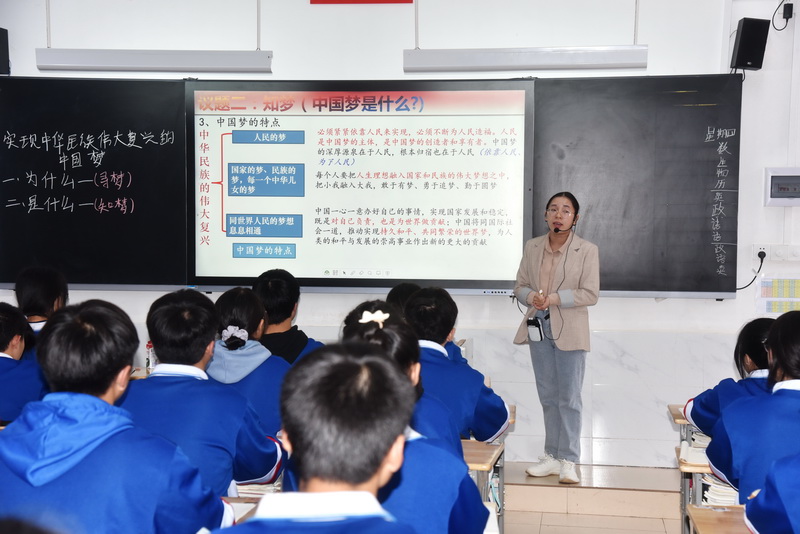 实现中华民族伟大复兴的
中国梦
一.为什么—(寻梦)
二.是什么—(知梦)
议题二：知梦（中国梦是什么?)
3、中国梦的特点
中华民族的伟大复兴
人民的梦
必须紧紧依靠人民来实现，必须不断为人民造福。人民
是中国梦的主体，是中国梦的创造者和享有者。中国梦
的深厚源泉在于人民，根本归宿也在于人民（依靠人民、
为了人民）
国家的梦、民族的
梦，每一个中华儿
女的梦
每个人要把人生理想融入国家和民族的伟大梦想之中，
把小我融入大我，敢于有梦、勇于追梦、勤于圆梦
同世界人民的梦想
息息相通
中国一心一意办好自己的事情，实现国家发展和稳定，
既是对自己负责，也是为世界做贡献；中国将同国际社
会一道，推动实现持久和平、共同繁荣的世界梦，为人
类的和平与发展的崇高事业作出新的更大的贡献
中国梦的特点
星期四
数
生物
历
英
政